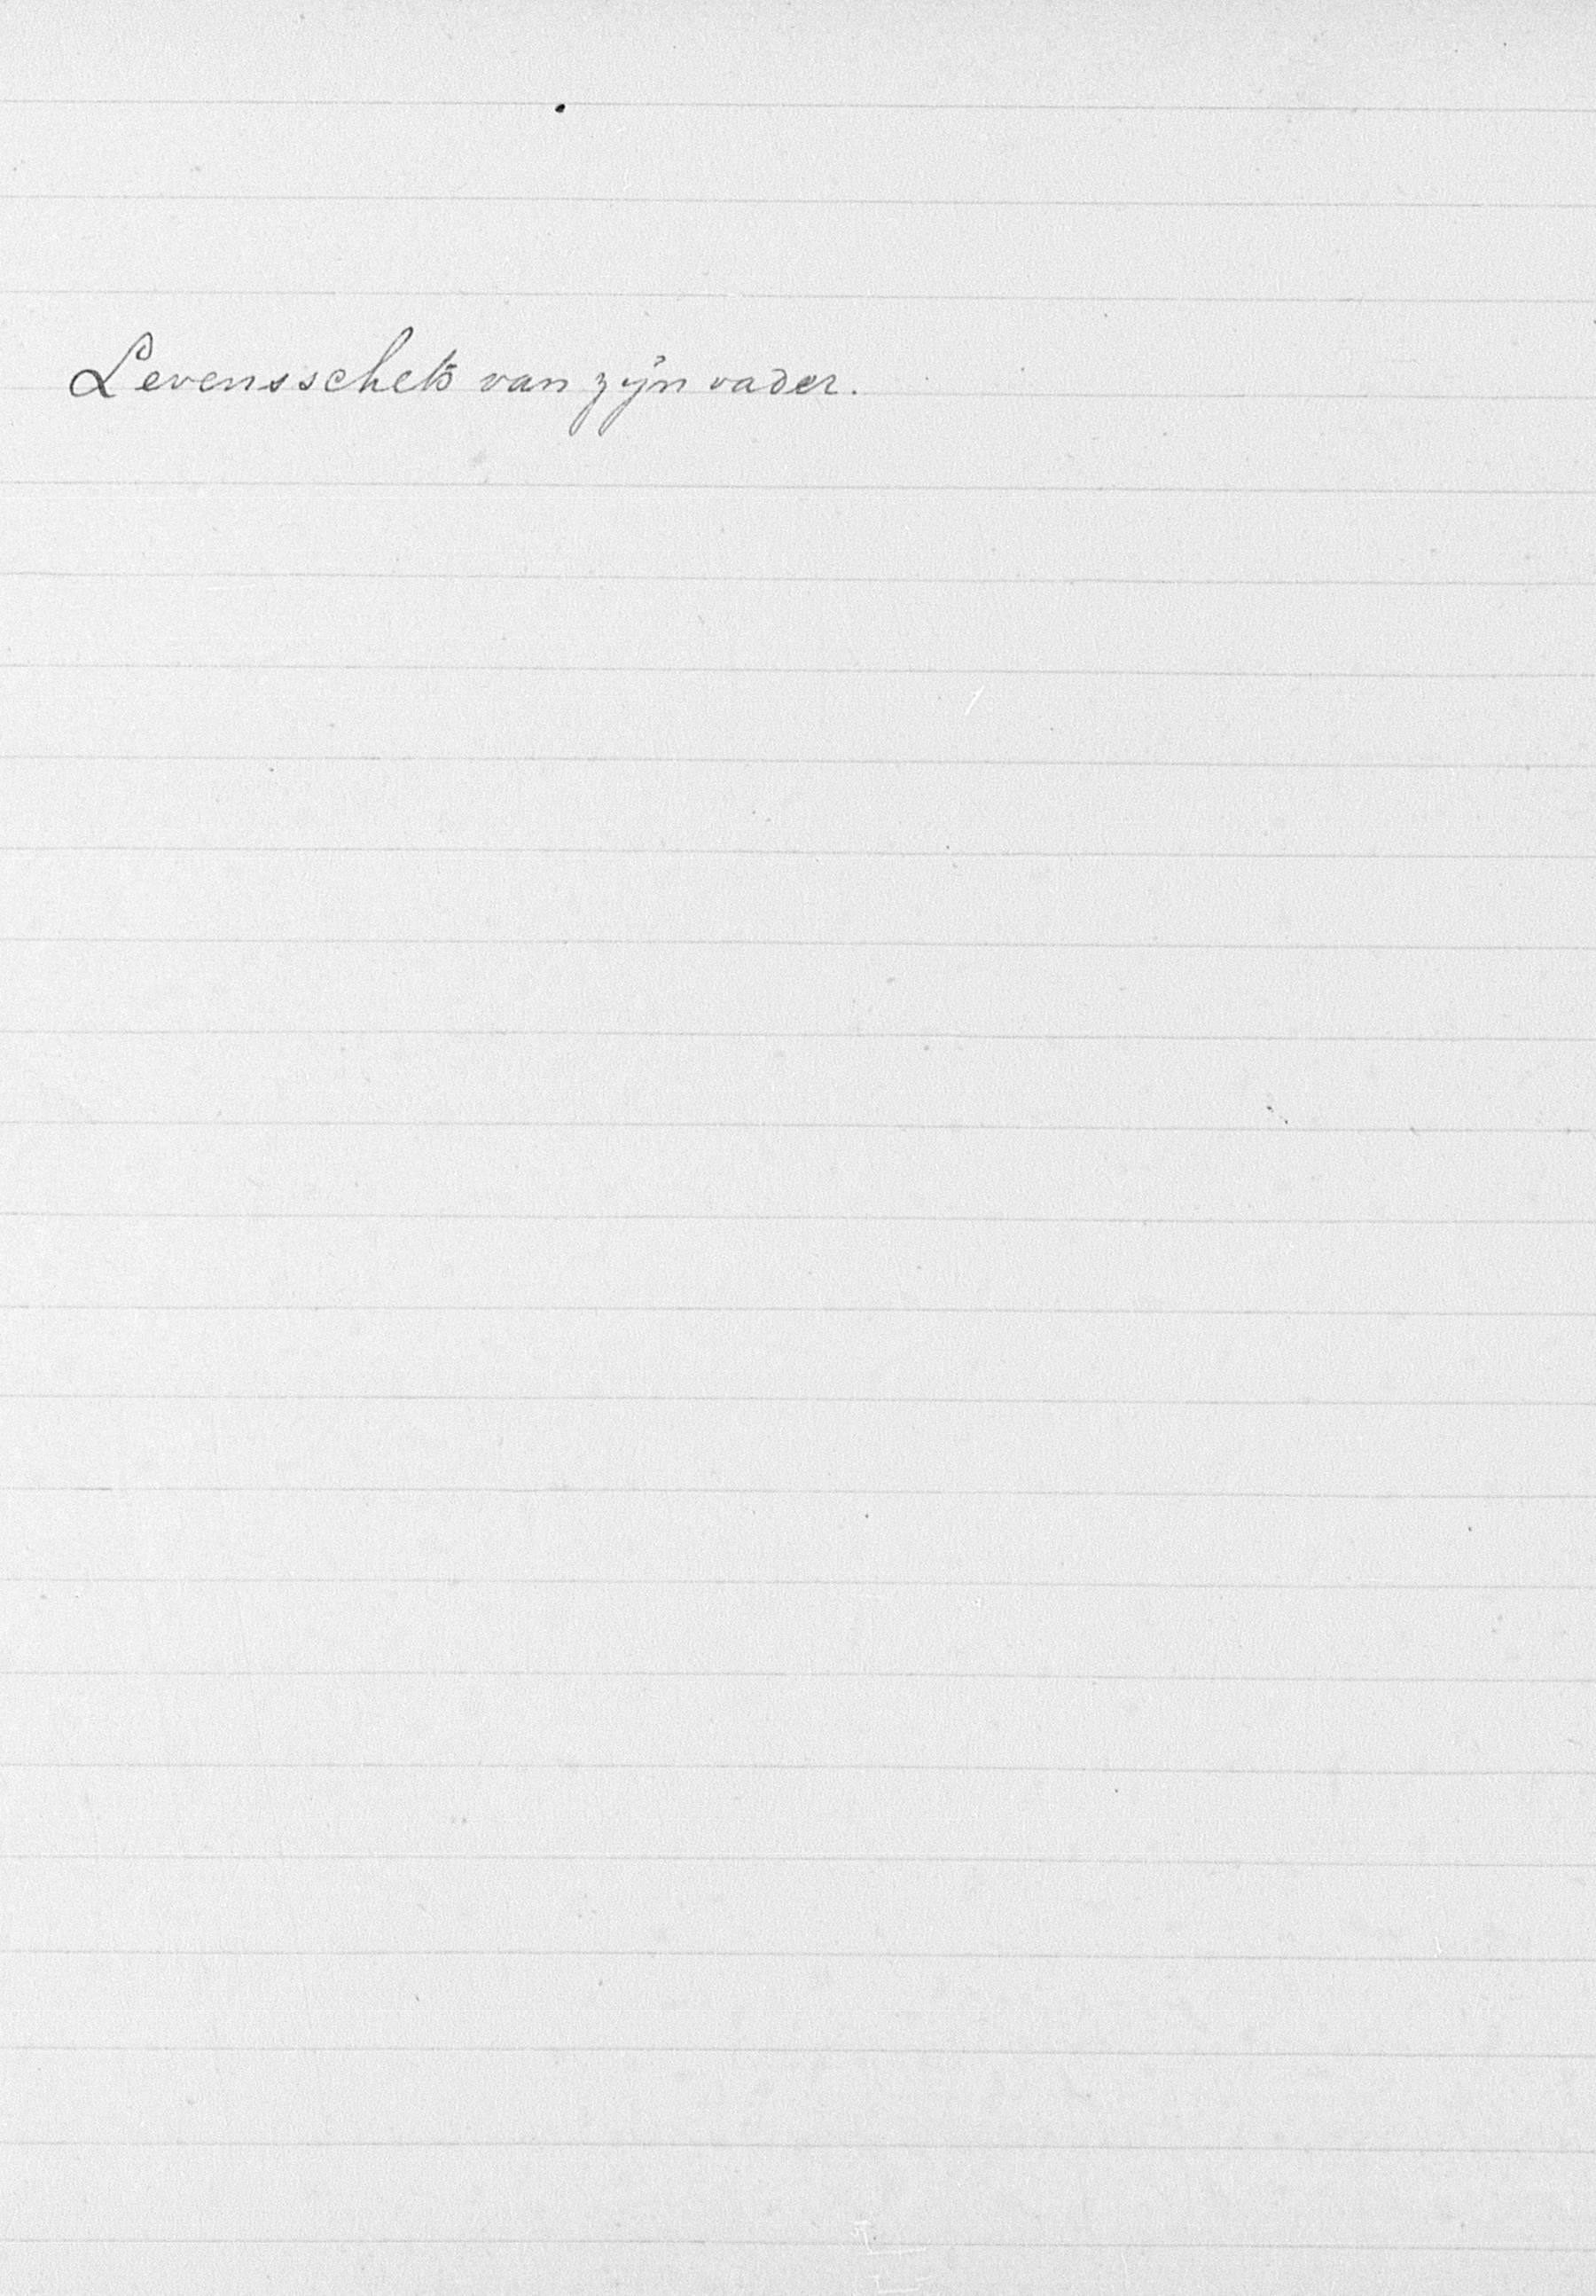 Levensschets van zijn vader.